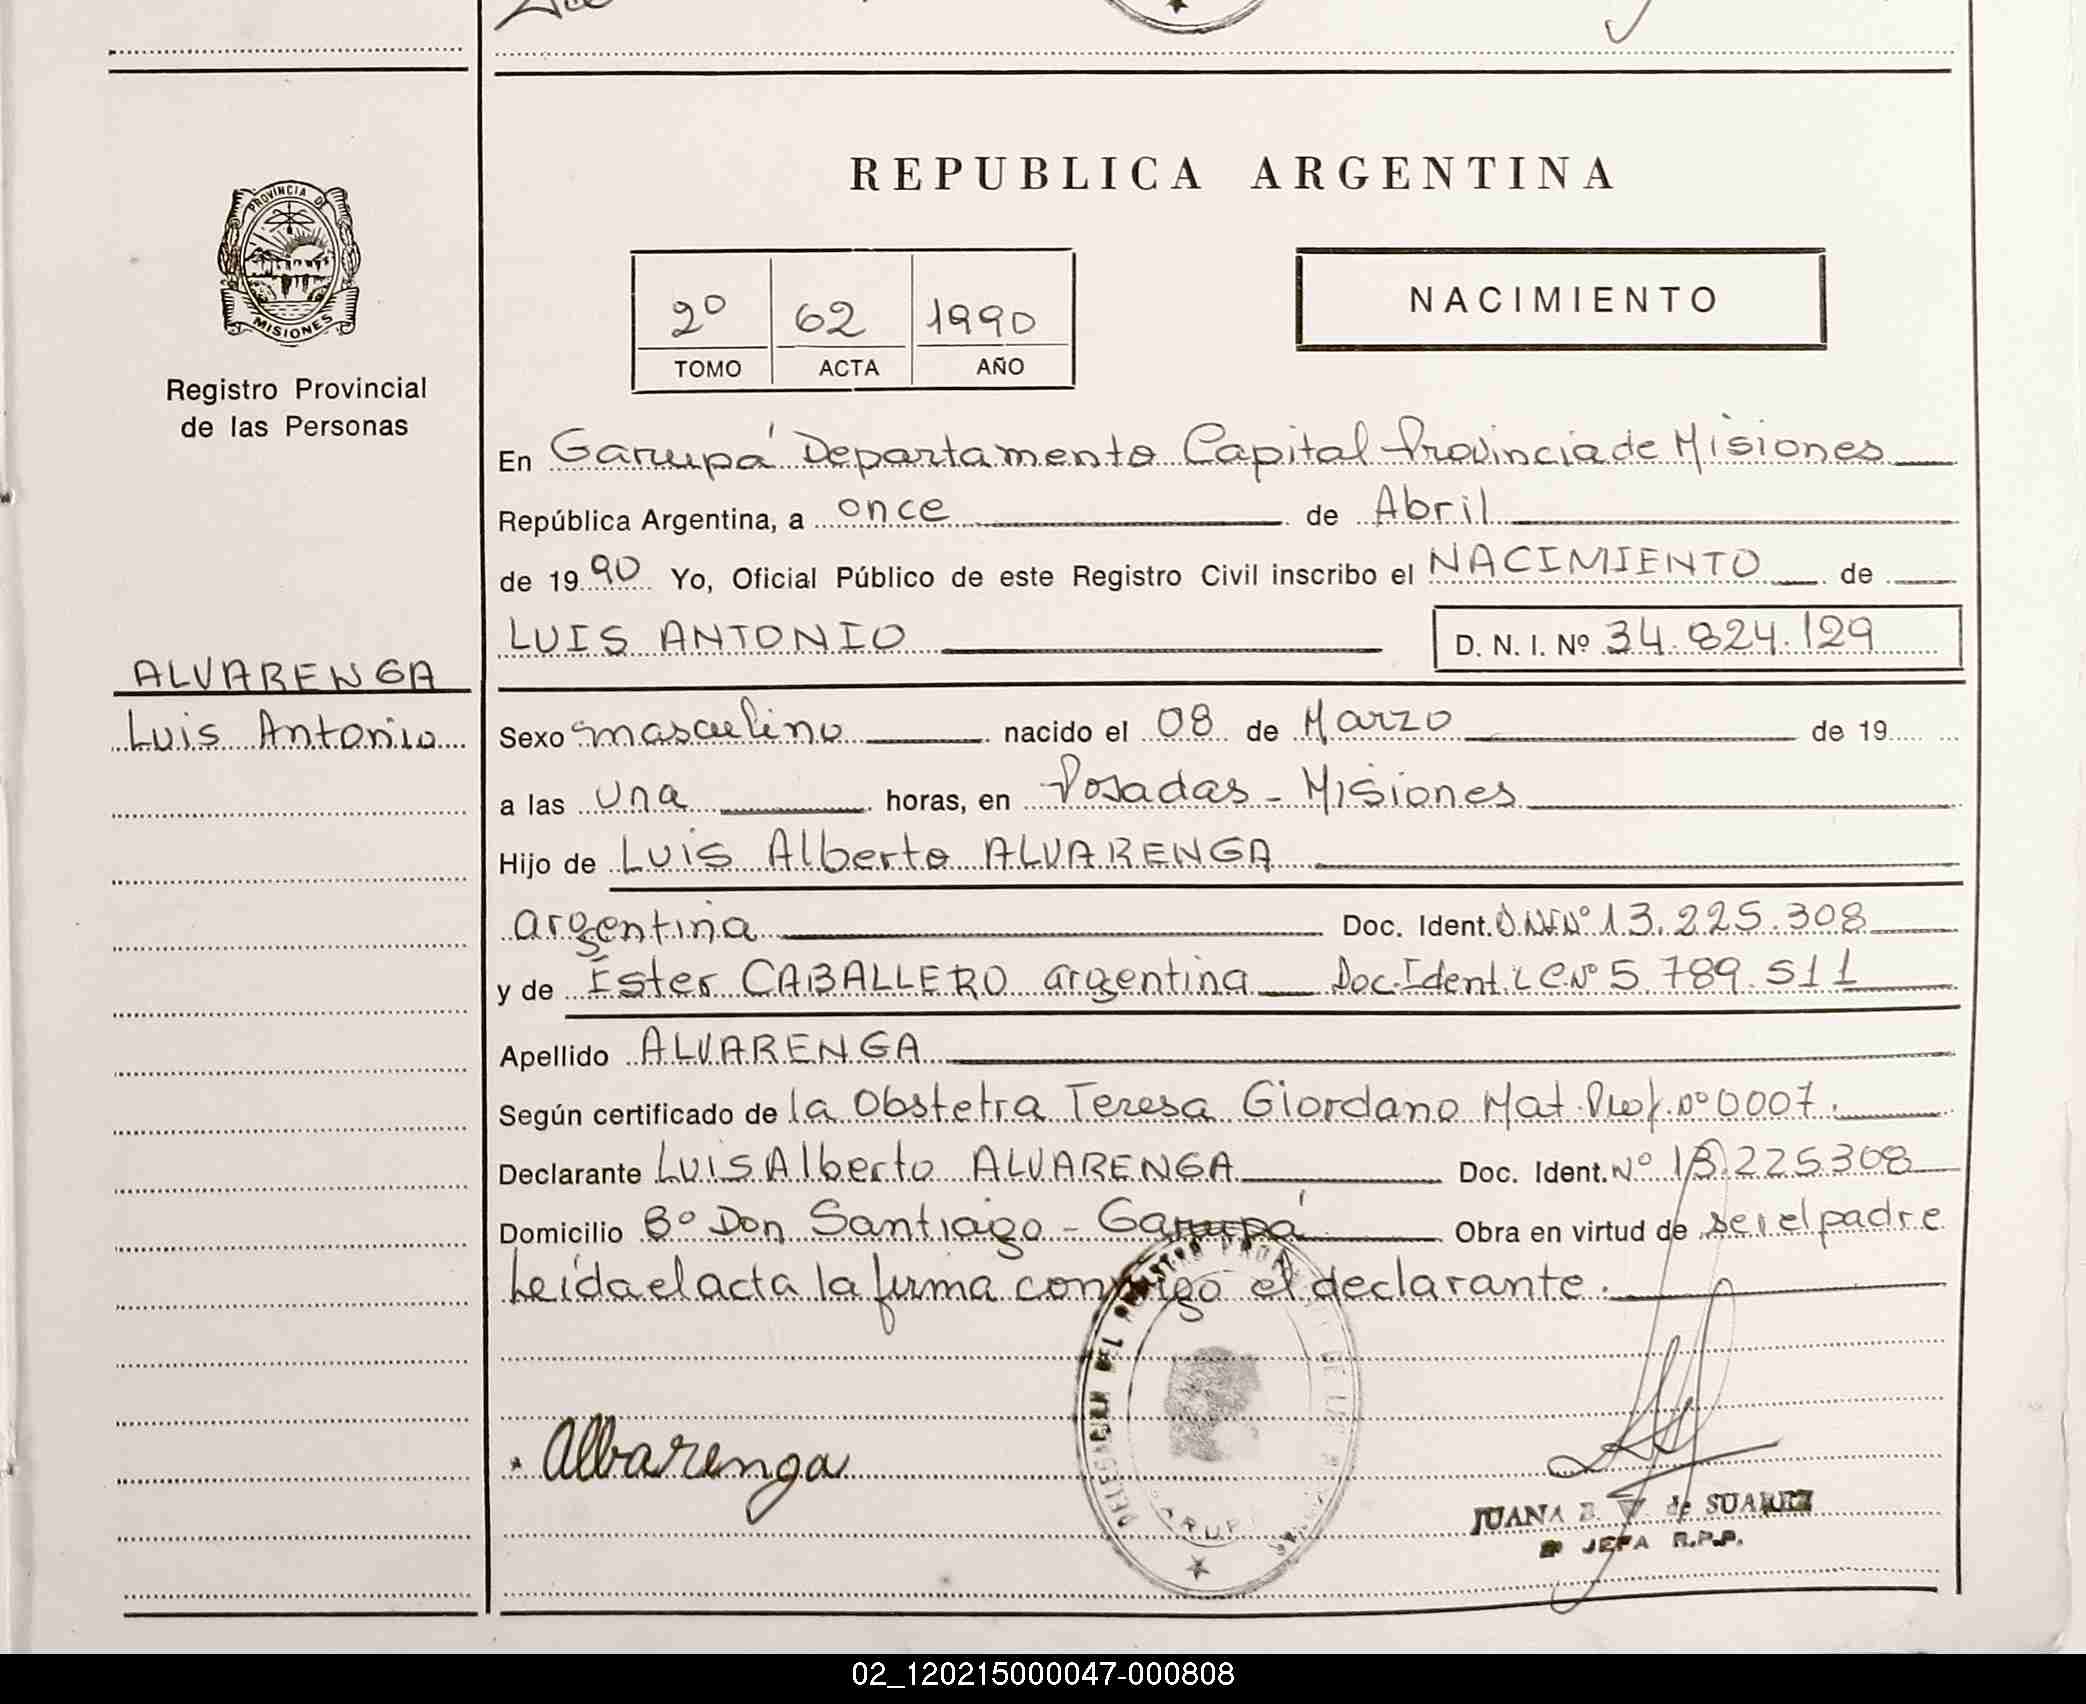 REPUBLICA ARGENTINA
PROVINCIA D
MISIONES
Registro Provincial
de las Personas
2º 62 1990
TOMO ACTA AÑO
NACIMIENTO
En Garupá Departamento Capital Provincia de Misiones
República Argentina, a once de Abril
de 1990 Yo, Oficial Público de este Registro Civil inscribo el NACIMIENTO de
LUIS ANTONIO D. N. I. Nº 34.824.129
ALVARENGA
Luis Antonio
Sexo masculino nacido el 08 de Marzo de 19
a las una horas, en Posadas - Misiones
Hijo de Luis Alberto ALVARENGA
argentina Doc. Ident. DNINº 13.225.308
y de Ester CABALLERO argentina Doc. Ident. LC Nº 5 789.511
Apellido ALVARENGA
Según certificado de la Obstetra Teresa Giordano Mat. Prof. nº 0007.
Declarante Luis Alberto ALVARENGA Doc. Ident. Nº 13.225308
Domicilio Bº Don Santiago - Garupá Obra en virtud de ser el padre
Leída el acta la firma conmigo el declarante.
Albarenga
JUANA B. V. de SUAREZ
JEFA R.P.P.
02_120215000047-000808